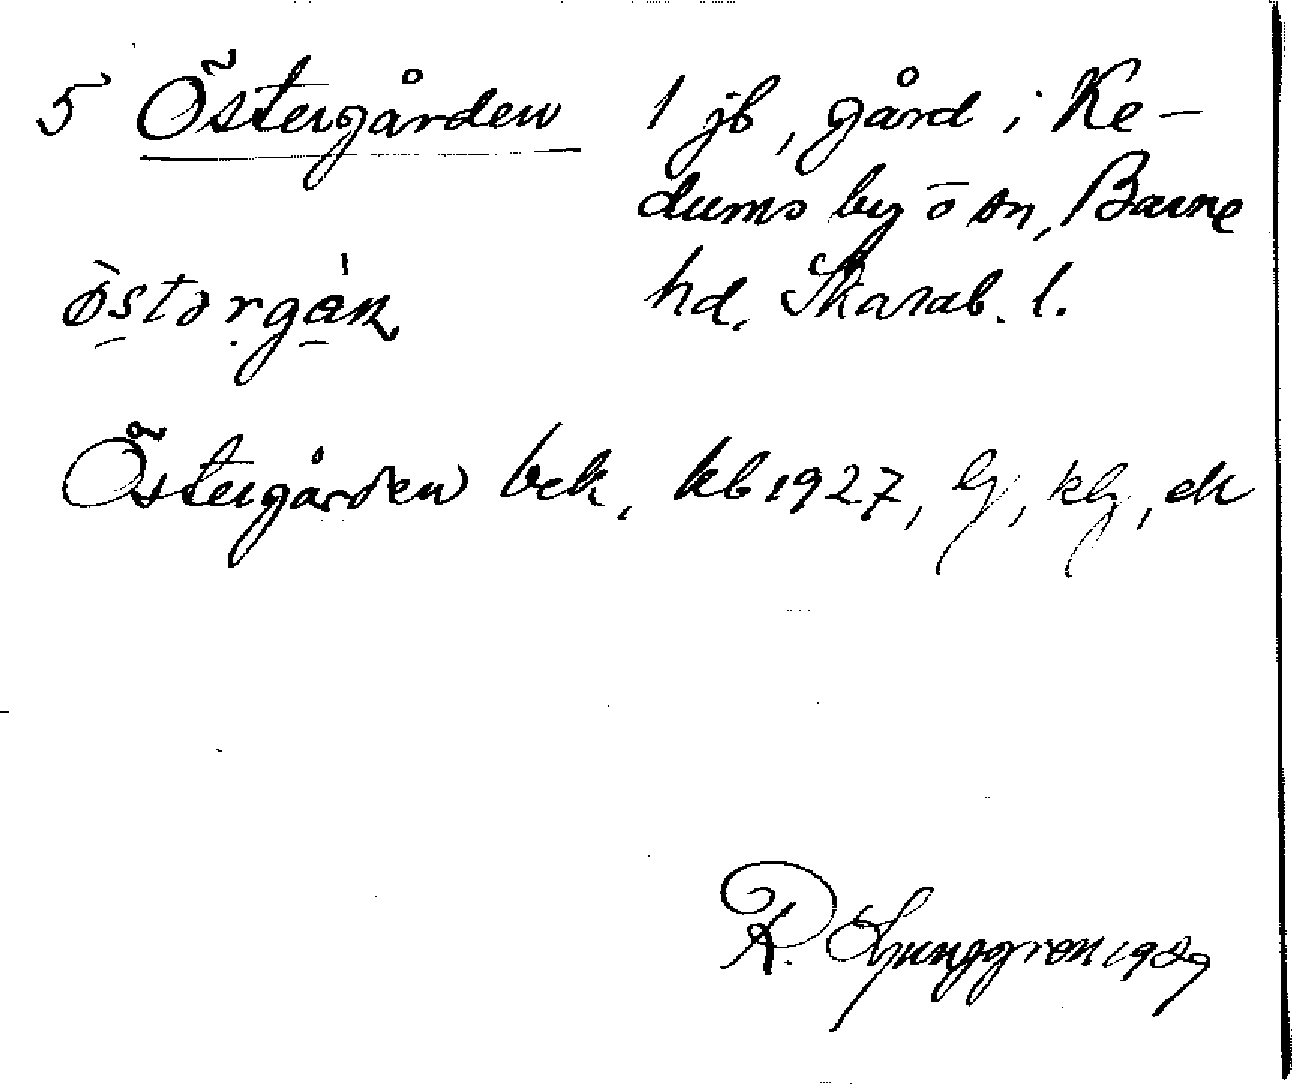 5 Östergården 1 jb, gård i Ke-
dums by o sn, Barne
hd, Skarab. l.
östərgán
Östergården bek, kb 1927, lg, klg, ek
R. Ljunggren 1929